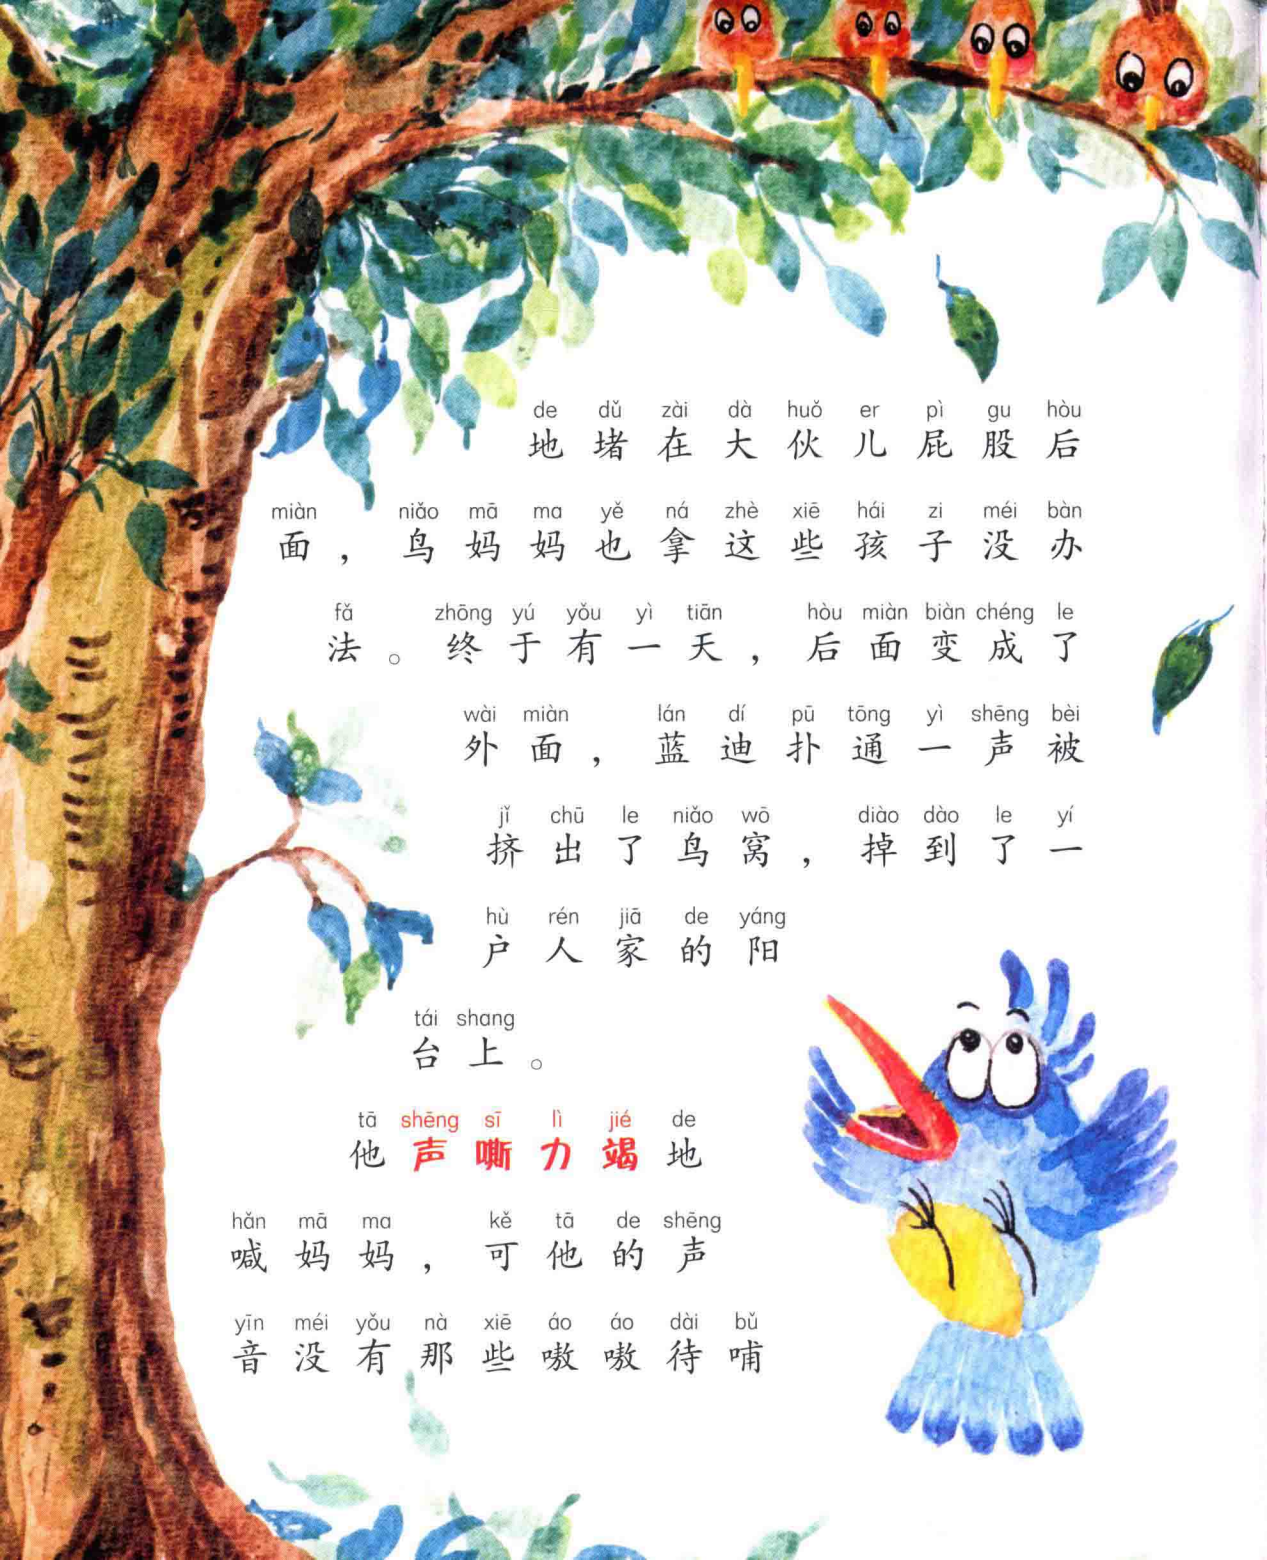 de dǔ zài dà huǒ er pì gu hòu
地堵在大伙儿屁股后
miàn niǎo mā ma yě ná zhè xiē hái zi méi bàn
面，鸟妈妈也拿这些孩子没办
fǎ zhōng yú yǒu yì tiān hòu miàn biàn chéng le
法。终于有一天，后面变成了
wài miàn lán dí pū tōng yì shēng bèi
外面，蓝迪扑通一声被
jǐ chū le niǎo wō diào dào le yí
挤出了鸟窝，掉到了一
hù rén jiā de yáng
户人家的阳
tái shang
台上。
tā shēng sī lì jié de
他声嘶力竭地
hǎn mā ma kě tā de shēng
喊妈妈，可他的声
yīn méi yǒu nà xiē áo áo dài bǔ
音没有那些嗷嗷待哺